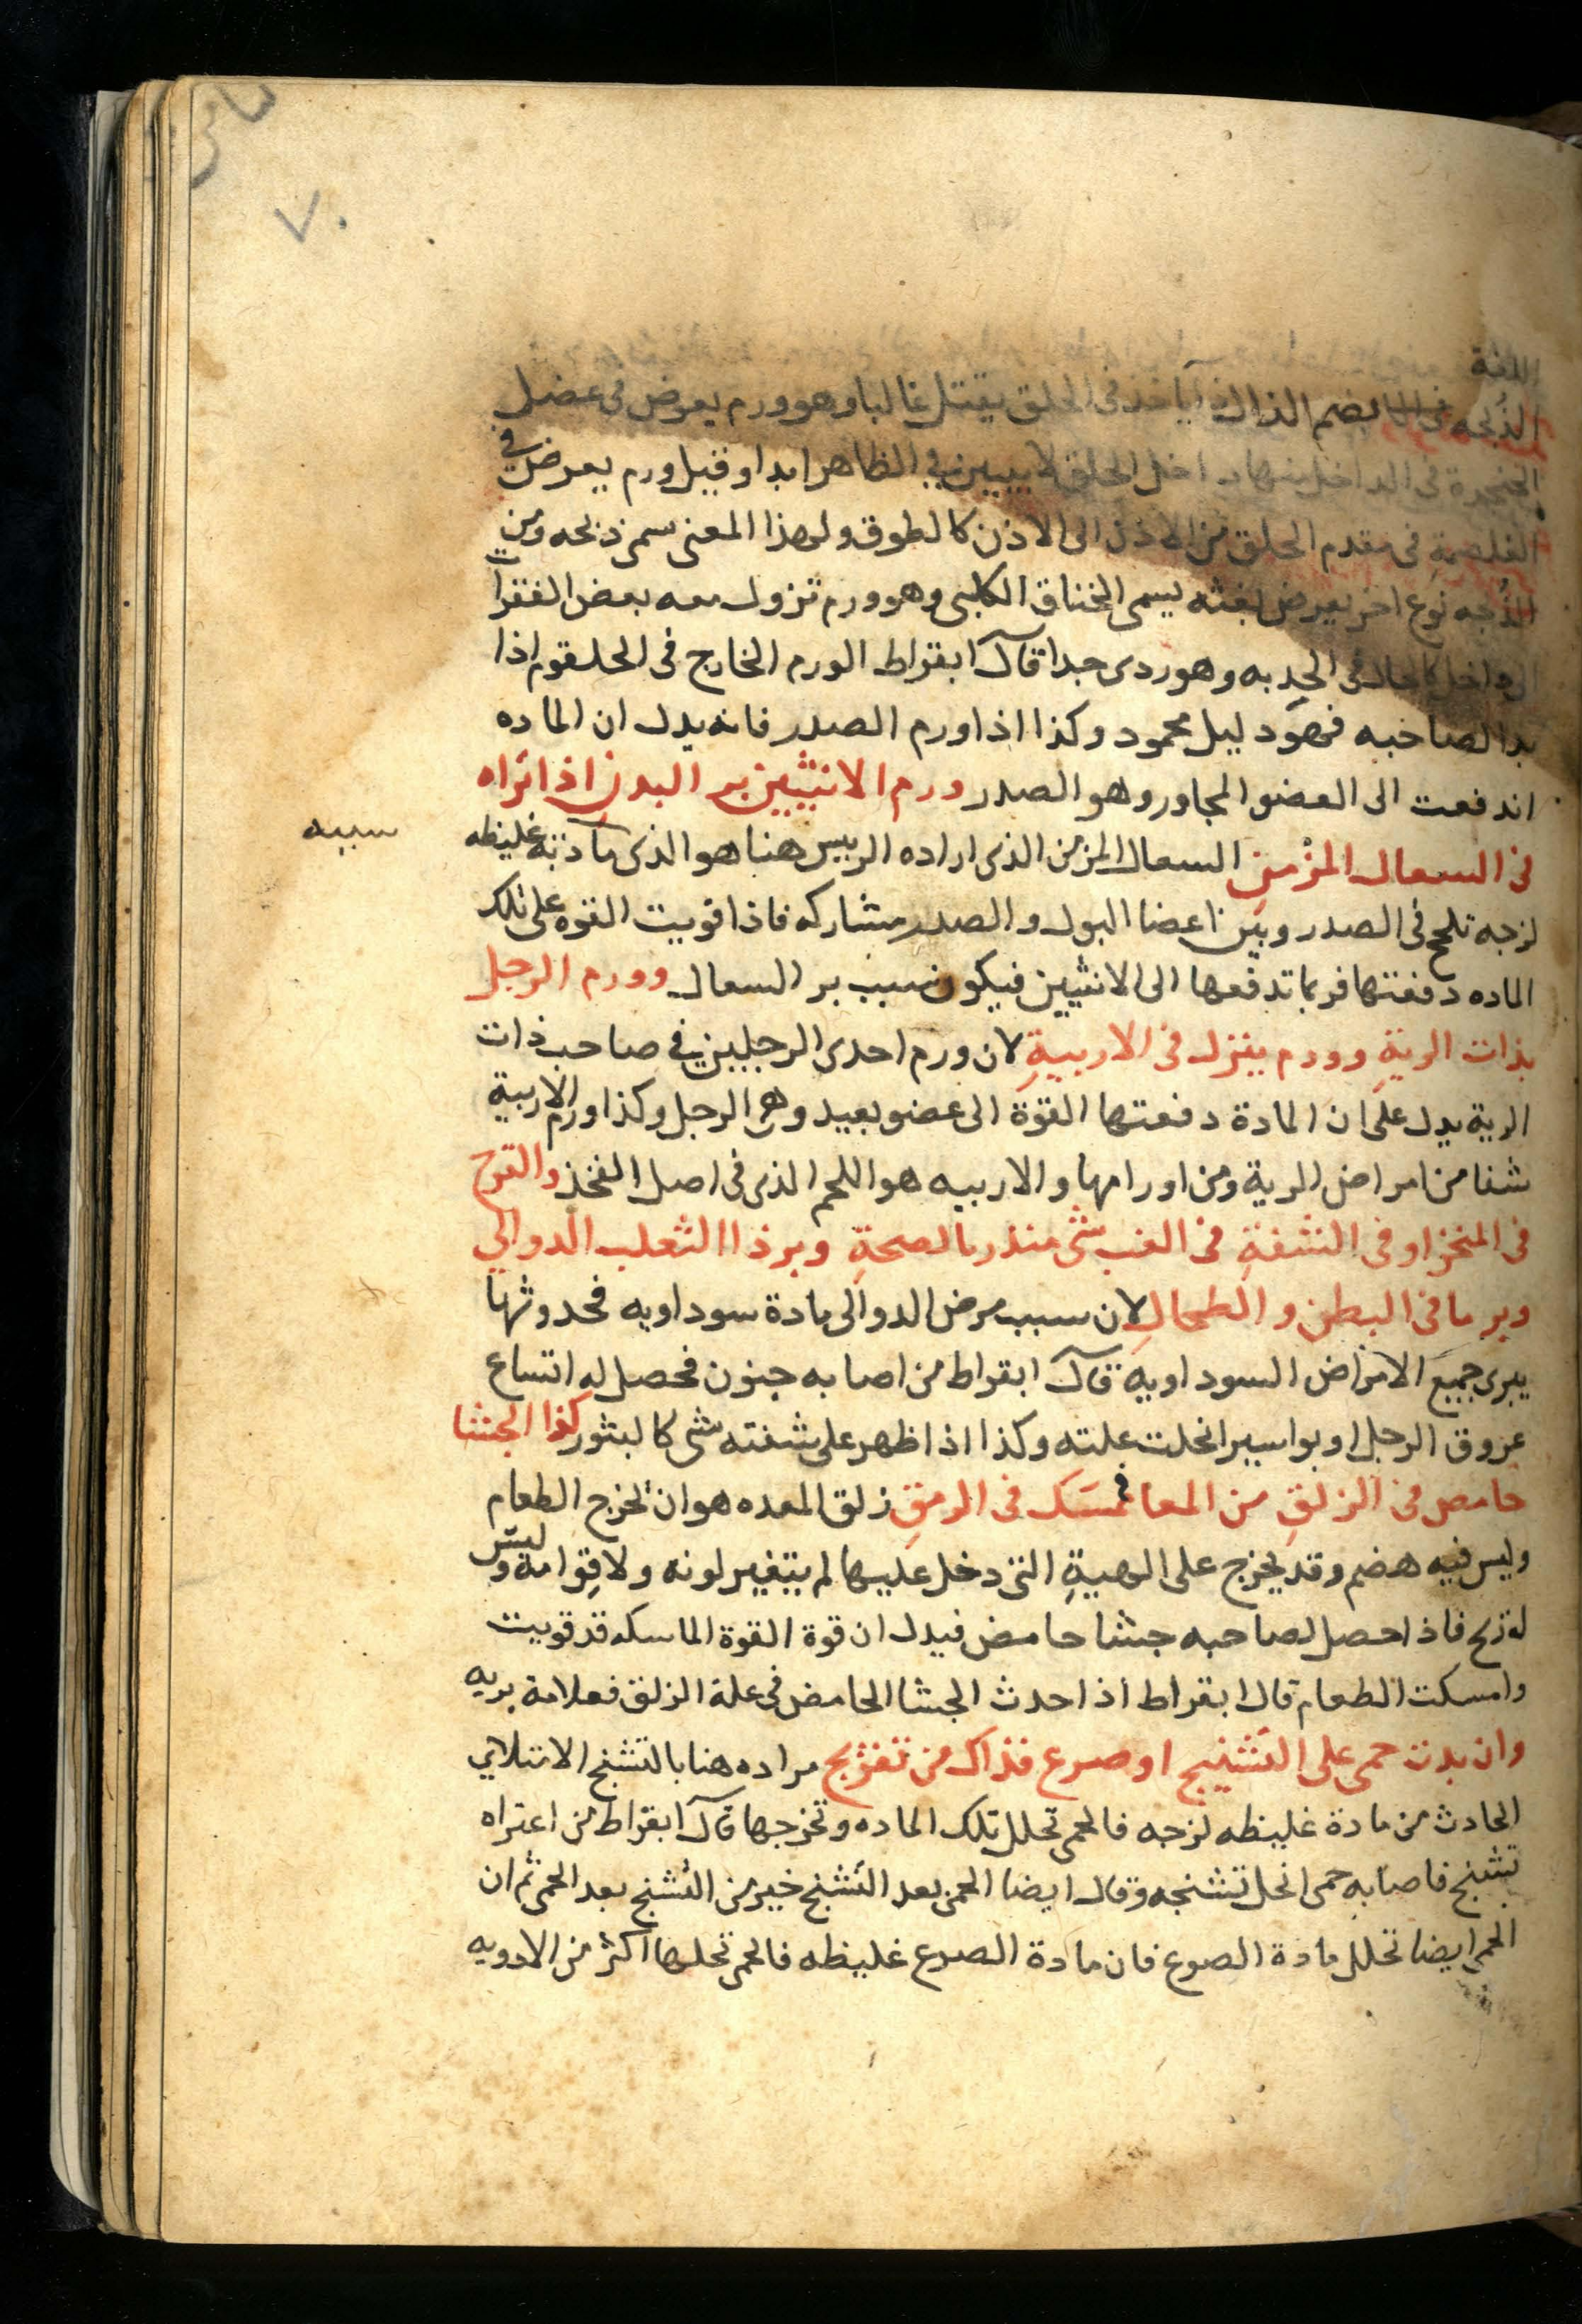 ٧٠
اللغة
الذبحه بضم الذال يأخذ فى الحلق يقتل غالبا وهو ورم يعرض فى عضل
الحنجرة فى الداخل منها داخل الحلق لا يبين في الظاهر ابدا وقيل ورم يعرض في
الغلصمة فى مقدم الحلق من الاذن الى الاذن كالطوق ولهذا المعنى سمى ذبحه ومن
الذبحه نوع اخر يعرض بغثه يسمى الخناق الكلبى وهو ورم تزول معه بعض الفقرات
الى داخل كالحال فى الحدبه وهو ردى جدا قال ابقراط الورم الخارج فى الحلقوم اذا
بدا لصاحبه فهو دليل محمود وكذا اذا ورم الصدر فانه يدل ان الماده
اندفعت الى العضو المجاور وهو الصدر ورم الانثيين بر البدن اذا تراه
فى السعال المزمن السعال المزمن الذى اراده الرييس هنا هو الذى مادته غليظه
سببه
لزجه تلحج فى الصدر وبين اعضا البول والصدر مشاركه فاذا قويت القوه على تلك
الماده دفعتها فربما تدفعها الى الانثيين فيكون سبب بر السعال وورم الرجل
بذات الرية وورم ينزل فى الاربية لان ورم احدى الرجلين في صاحب ذات
الرية يدل على ان المادة دفعتها القوة الى عضو بعيد وهى الرجل وكذا ورم الاربية
شفا من امراض الرية ومن اورامها والاربيه هو اللحم الذى فى اصل الفخذ والقرح
فى المنخر او فى الشفة فى الغب شى منذر بالصحة وبر ذا الثعلب الدوالي
وبر ما فى البطن والطحال لان سبب مرض الدوالى مادة سوداويه فحدوثها
يبرى جميع الامراض السوداويه قال ابقراط من اصابه جنون فحصل له اتساع
عروق الرجل او بواسير انحلت علته وكذا اذا ظهر على شفته شى كالبثور كذا الجشا
حامض فى الزلق من المعا فمسك فى الرمق زلق المعده هو ان تخرج الطعام
وليس فيه هضم وقد يخرج على الهيية التى دخل عليها لم يتغير لونه ولا قوامه وليس
له ريح فاذا حصل لصاحبه جشا حامض فيدل ان قوة القوة الماسكه قد قويت
وامسكت الطعام قال ابقراط اذا حدث الجشا الحامض فى علة الزلق فعلامة بريه
وان بدت حمى على التشنيج او صرع فذاك من تفريج مراده هنا بالتشنج الامتلاي
الحادث من مادة غليظه لزجه فالحمى تحلل تلك الماده وتخرجها قال ابقراط من اعتراه
تشنج فاصابه حمى انحل تشنجه وقال ايضا الحمى بعد التشنج خير من التشنج بعد الحمى ثم ان
الحمى ايضا تحلل مادة الصرع فان مادة الصرع غليظه فالحمى تحلها اكثر من الادويه